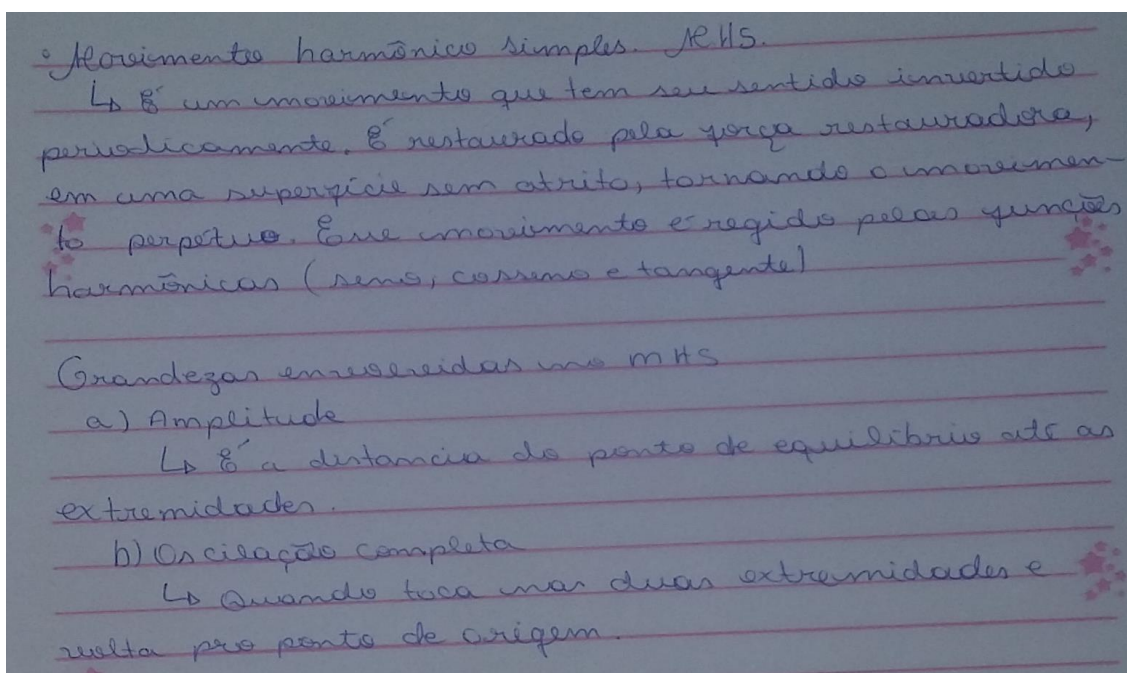 • Movimento harmônico simples. MHS.
↳ É um movimento que tem seu sentido invertido
periodicamente. É restaurado pela força restauradora,
em uma superfície sem atrito, tornando o movimen-
to perpétuo. Esse movimento é regido pelas funções
harmônicas (seno, cosseno e tangente)
Grandezas envolvidas no MHS
a) Amplitude
↳ É a distancia do ponto de equilíbrio até as
extremidades.
b) Oscilação completa
↳ Quando toca nas duas extremidades e
volta pro ponto de origem.